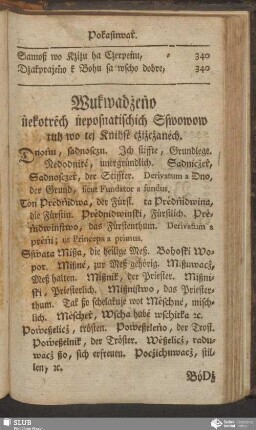 Pokasuwaŕ.
Samoß wo Kżiżu ha Czerpeńu, = 340
Dżakprajeńo k Bohu sa wscho dobre, 340
Wukwadżeńo
ńekotrèch ńeposnatischich Sswowow
tuh wo tej Knihße cżiżeżanéch.
Dnoſu, ſadnoſczu. Jch ſtiffte, Grundlege.
Nedodnité, unergründlich. Sadńicżeŕ,
Sadnoſczeŕ, der Stiffter. Derivatum a Dno,
der Grund, ſicut Fundator a fundus.
Ton Predńdwa, der Fürſt. ta Predńidwina,
die Fürſtin. Prédńidwinski, Fürſtlich. Pré-
ńidwinſtwo, das Fürſtenthum. Derivatum a
préńi; us Princeps a primus.
Sſwata Miſſa, die heilige Meß. Bohoſki Wo-
por. Miſſné, zur Meß gehörig. Miſſuwacż,
Meß halten. Mißnik, der Prieſter. Mißni-
ſki, Prieſterlich. Mißniſtwo, das Prieſter-
thum. Tak ſo ſchelakuje wot Mèſchné, miſch-
lich. Mèſcheŕ, Wſcha habè wſchitka ꝛc.
Poẃeßelicż, tröſten. Poẃeßeleńo, der Troſt.
Poẃeßelnik, der Tröſter. Wéßelicż, radu-
wacż ßo, ſich erfreuen. Pocżichuwacż, ſtil-
len, ꝛc.
Bódż
SLUB